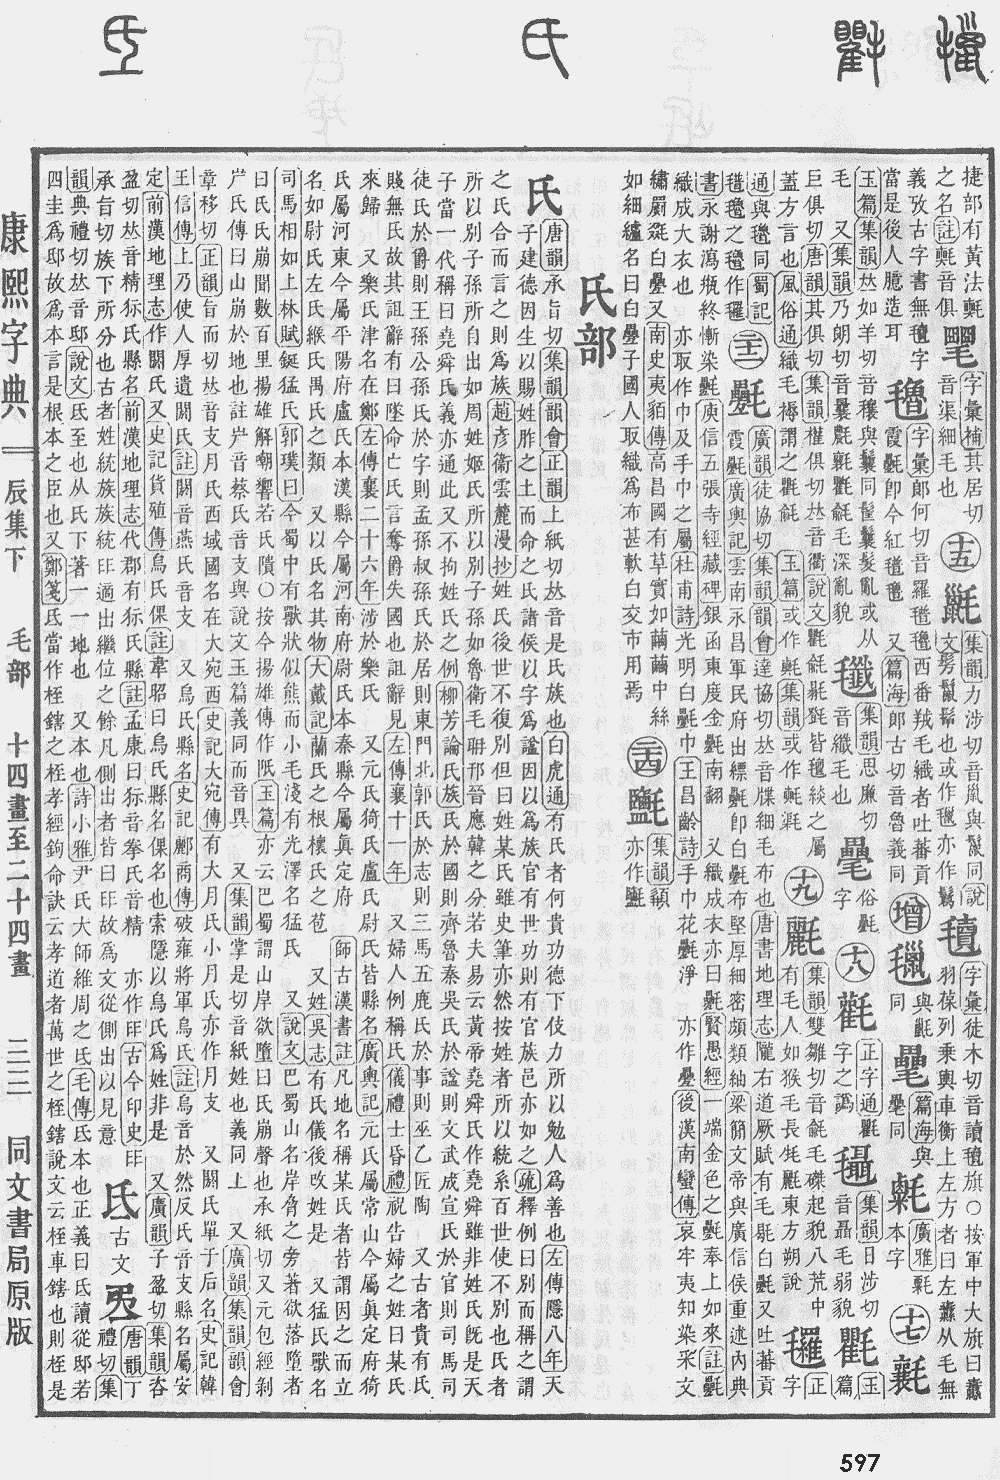 捷部有黃法氍 字彙補其居切 集韻力涉切音巤與鬣同說 字彙徒木切音讀氆旗○按軍中大旗曰纛
之名註氍音俱 音渠細毛也 十五 文髮鬣鬣也或作氎亦作鬣 羽葆列乘輿車衡上左方者曰左纛从毛無
義攷古字書無氆字 氌 字彙郎何切音羅氆氌西番羢毛織者吐蕃貢 與氍同 篇海與氎同 廣雅氀 十七 氎
當是後人臆造耳 霞氎卽今紅氆氌 又篇海郎古切音魯義同 增 本字
玉篇集韻𠀤如羊切音穰與鬤同髶鬤髮亂或从 集韻思廉切 俗氎字 十八 正字通氍字之譌 集韻日涉切音聶毛弱貌 玉篇
毛 又集韻乃朗切音曩氍氍毛深亂貌 音纖毛也
巨俱切唐韻其俱切集韻權俱切𠀤音衢說文氍毹毾㲪皆氊緂之屬 十九 集韻雙雛切音毹毛磔起貌八荒中 正字
蓋方言也風俗通織毛褥謂之氍毹 玉篇或作㲘集韻或作㲘 有毛人如猴毛長㲘東方朔說
通與氌同蜀記 廣韻徒協切集韻韻會達協切𠀤音牒細毛布也唐書地理志隴右道厥賦有毛毼白氎又吐蕃貢
氆氌之氌作氎 二十二 氎 霞氎廣輿記雲南永昌軍民府出縹氎卽白氎布堅厚細密頗類紬梁簡文帝與廣信侯重述內典
書永謝瀉甁終慚染氎庾信五張寺經藏碑銀函東度金氎南翻 又織成衣亦曰氎賢愚經一端金色之氎奉上如來註氎
織成大衣也 亦取作巾及手巾之屬杜甫詩光明白氎巾王昌齡詩手巾花氎淨 亦作疊後漢南蠻傳哀牢夷知染采文
繡罽㲲白疊又南史夷貊傳高昌國有草實如繭繭中絲
如細纑名曰白疊子國人取織爲布甚軟白交市用焉 二十四 集韻 亦作
氏部
氏 唐韻承旨切集韻韻會正韻上紙切𠀤音是氏族也白虎通有氏者何貴功德下伎力所以勉人爲善也左傳隱八年天
子建德因生以賜姓胙之土而命之氏諸侯以字爲謚因以爲族官有世功則有官族邑亦如之疏釋例曰別而稱之謂
之氏合而言之則爲族趙彥衞雲麓漫抄姓氏後世不復別但曰姓某氏雖史筆亦然按姓者所以統系百世使不別也氏者
所以別子孫所自出如周姓姬氏所以別子孫如魯衞毛耼邘晉應韓之分若夫易云黃帝堯舜氏作堯舜雖非姓氏旣是天
子當一代稱曰堯舜氏義亦通此又不拘姓氏之例柳芳論氏族氏於國則齊魯秦吳氏於謚則文武成宣氏於官則司馬司
徒氏於爵則王孫公孫氏於字則孟孫叔孫氏於居則東門北郭氏於志則三馬五鹿氏於事則巫乙匠陶 又古者貴有氏
賤無氏故其詛辭有曰墜命亡氏言奪爵失國也詛辭見左傳襄十一年 又婦人例稱氏儀禮士昏禮祝告婦之姓曰某氏
來歸 又樂氏津名在鄭左傳襄二十六年涉於樂氏 又元氏猗氏盧氏尉氏皆縣名廣輿記元氏屬常山今屬眞定府猗
氏屬河東今屬平陽府盧氏本漢縣今屬河南府尉氏本秦縣今屬眞定府 師古漢書註凡地名稱某氏者皆謂因之而立
名如尉氏左氏緱氏禺氏之類 又以氏名其物大戴記蘭氏之根櫰氏之苞 又姓吳志有氏儀後攺姓是 又猛氏獸名
司馬相如上林賦鋋猛氏郭璞曰今蜀中有獸狀似熊而小毛淺有光澤名猛氏 又說文巴蜀山名岸脅之旁著欲落墮者
曰氏氏崩聞數百里揚雄解嘲響若氏隤○按今揚雄傳作阺玉篇亦云巴蜀謂山岸欲墮曰氏崩聲也承紙切又元包經剝
屵氏傳曰山崩於地也註屵音櫱氏音支與說文玉篇義同而音異 又集韻掌是切音紙姓也義同上 又廣韻集韻韻會
章移切正韻旨而切𠀤音支月氏西域國名在大宛西史記大宛傳有大月氏小月氏亦作月支 又閼氏單于后名史記韓
王信傳上乃使人厚遺閼氏註閼音燕氏音支 又烏氏縣名史記酈商傳破雍將軍烏氏註烏音於然反氏音支縣名屬安
定前漢地理志作閼氏又史記貨殖傳烏氏倮註韋昭曰烏氏縣名倮名也索隱以烏氏爲姓非是 又廣韻子盈切集韻咨
盈切𠀤音精狋氏縣名前漢地理志代郡有狋氏縣註孟康曰狋音拳氏音精 亦作 古今印史
承旨切族下所分也古者姓統族族統氏適出繼位之餘凡側出者皆曰氏故爲文從側出以見意 氐 古文 唐韻丁禮切集
韻典禮切𠀤音邸說文氐至也从氏下著一一地也 又本也詩小雅尹氏大師維周之氐毛傳氐本也正義曰氐讀從邸若
四圭爲邸故爲本言是根本之臣也又鄭箋氐當作桎鎋之桎孝經鉤命決云孝道者萬世之桎鎋說文云桎車鎋也則桎是
康熙字典 辰集下 毛部 十四畫至二十四畫 同文書局原版
597